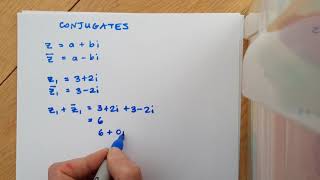 CONJUGATES
z = a + bi
z̅ = a - bi
z₁ = 3+2i
z̅₁ = 3-2i
z₁ + z̅₁ = 3+2i +3-2i
= 6
6 + 0